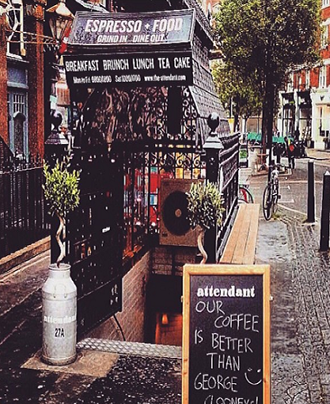 ESPRESSO + FOOD
GRIND IN DINE OUT
BREAKFAST BRUNCH LUNCH TEA CAKE
www.the-attendant.com
attendant
27A
attendant
OUR
COFFEE
IS BETTER
THAN
GEORGE
CLOONEYS!